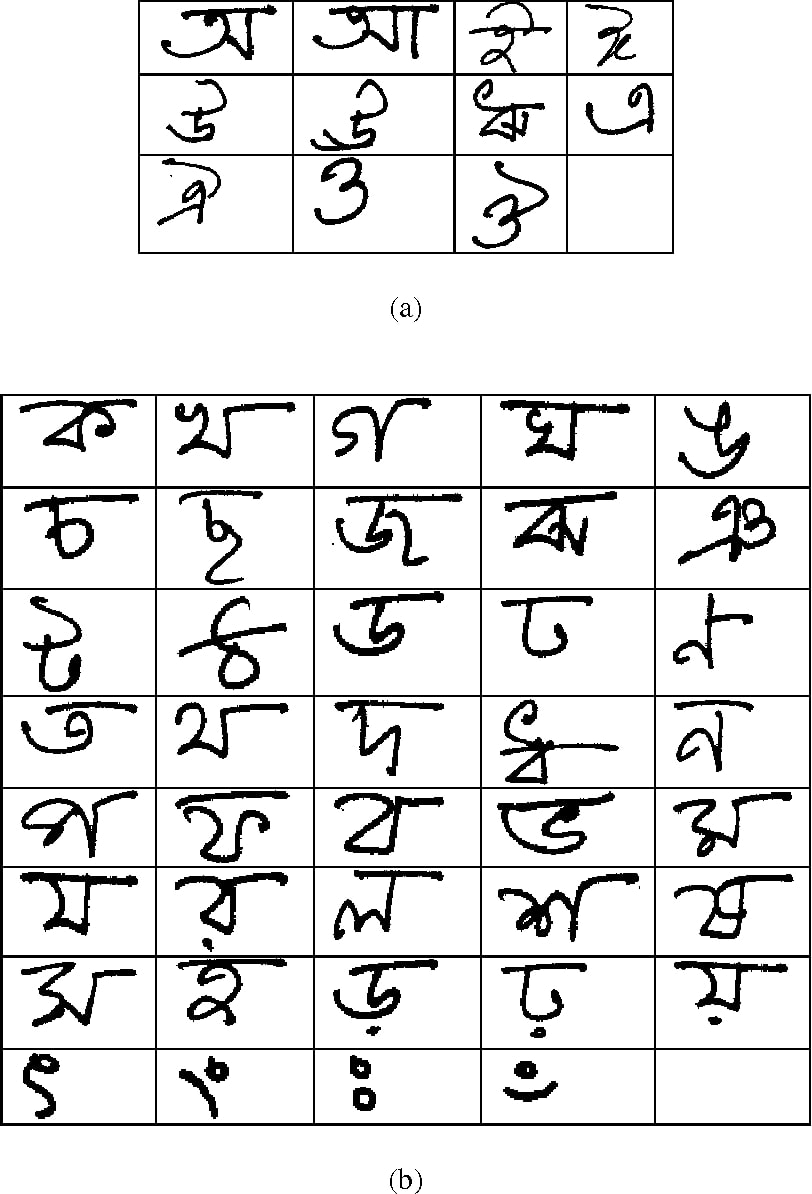 অ আ ই ঈ
উ ঊ ঋ এ
ঐ ও ঔ
(a)
ক খ গ ঘ ঙ
চ ছ জ ঝ ঞ
ট ঠ ড ঢ ণ
ত থ দ ধ ন
প ফ ব ভ ম
য র ল শ ষ
স হ ড় ঢ় য়
ৎ ং ঃ ঁ
(b)